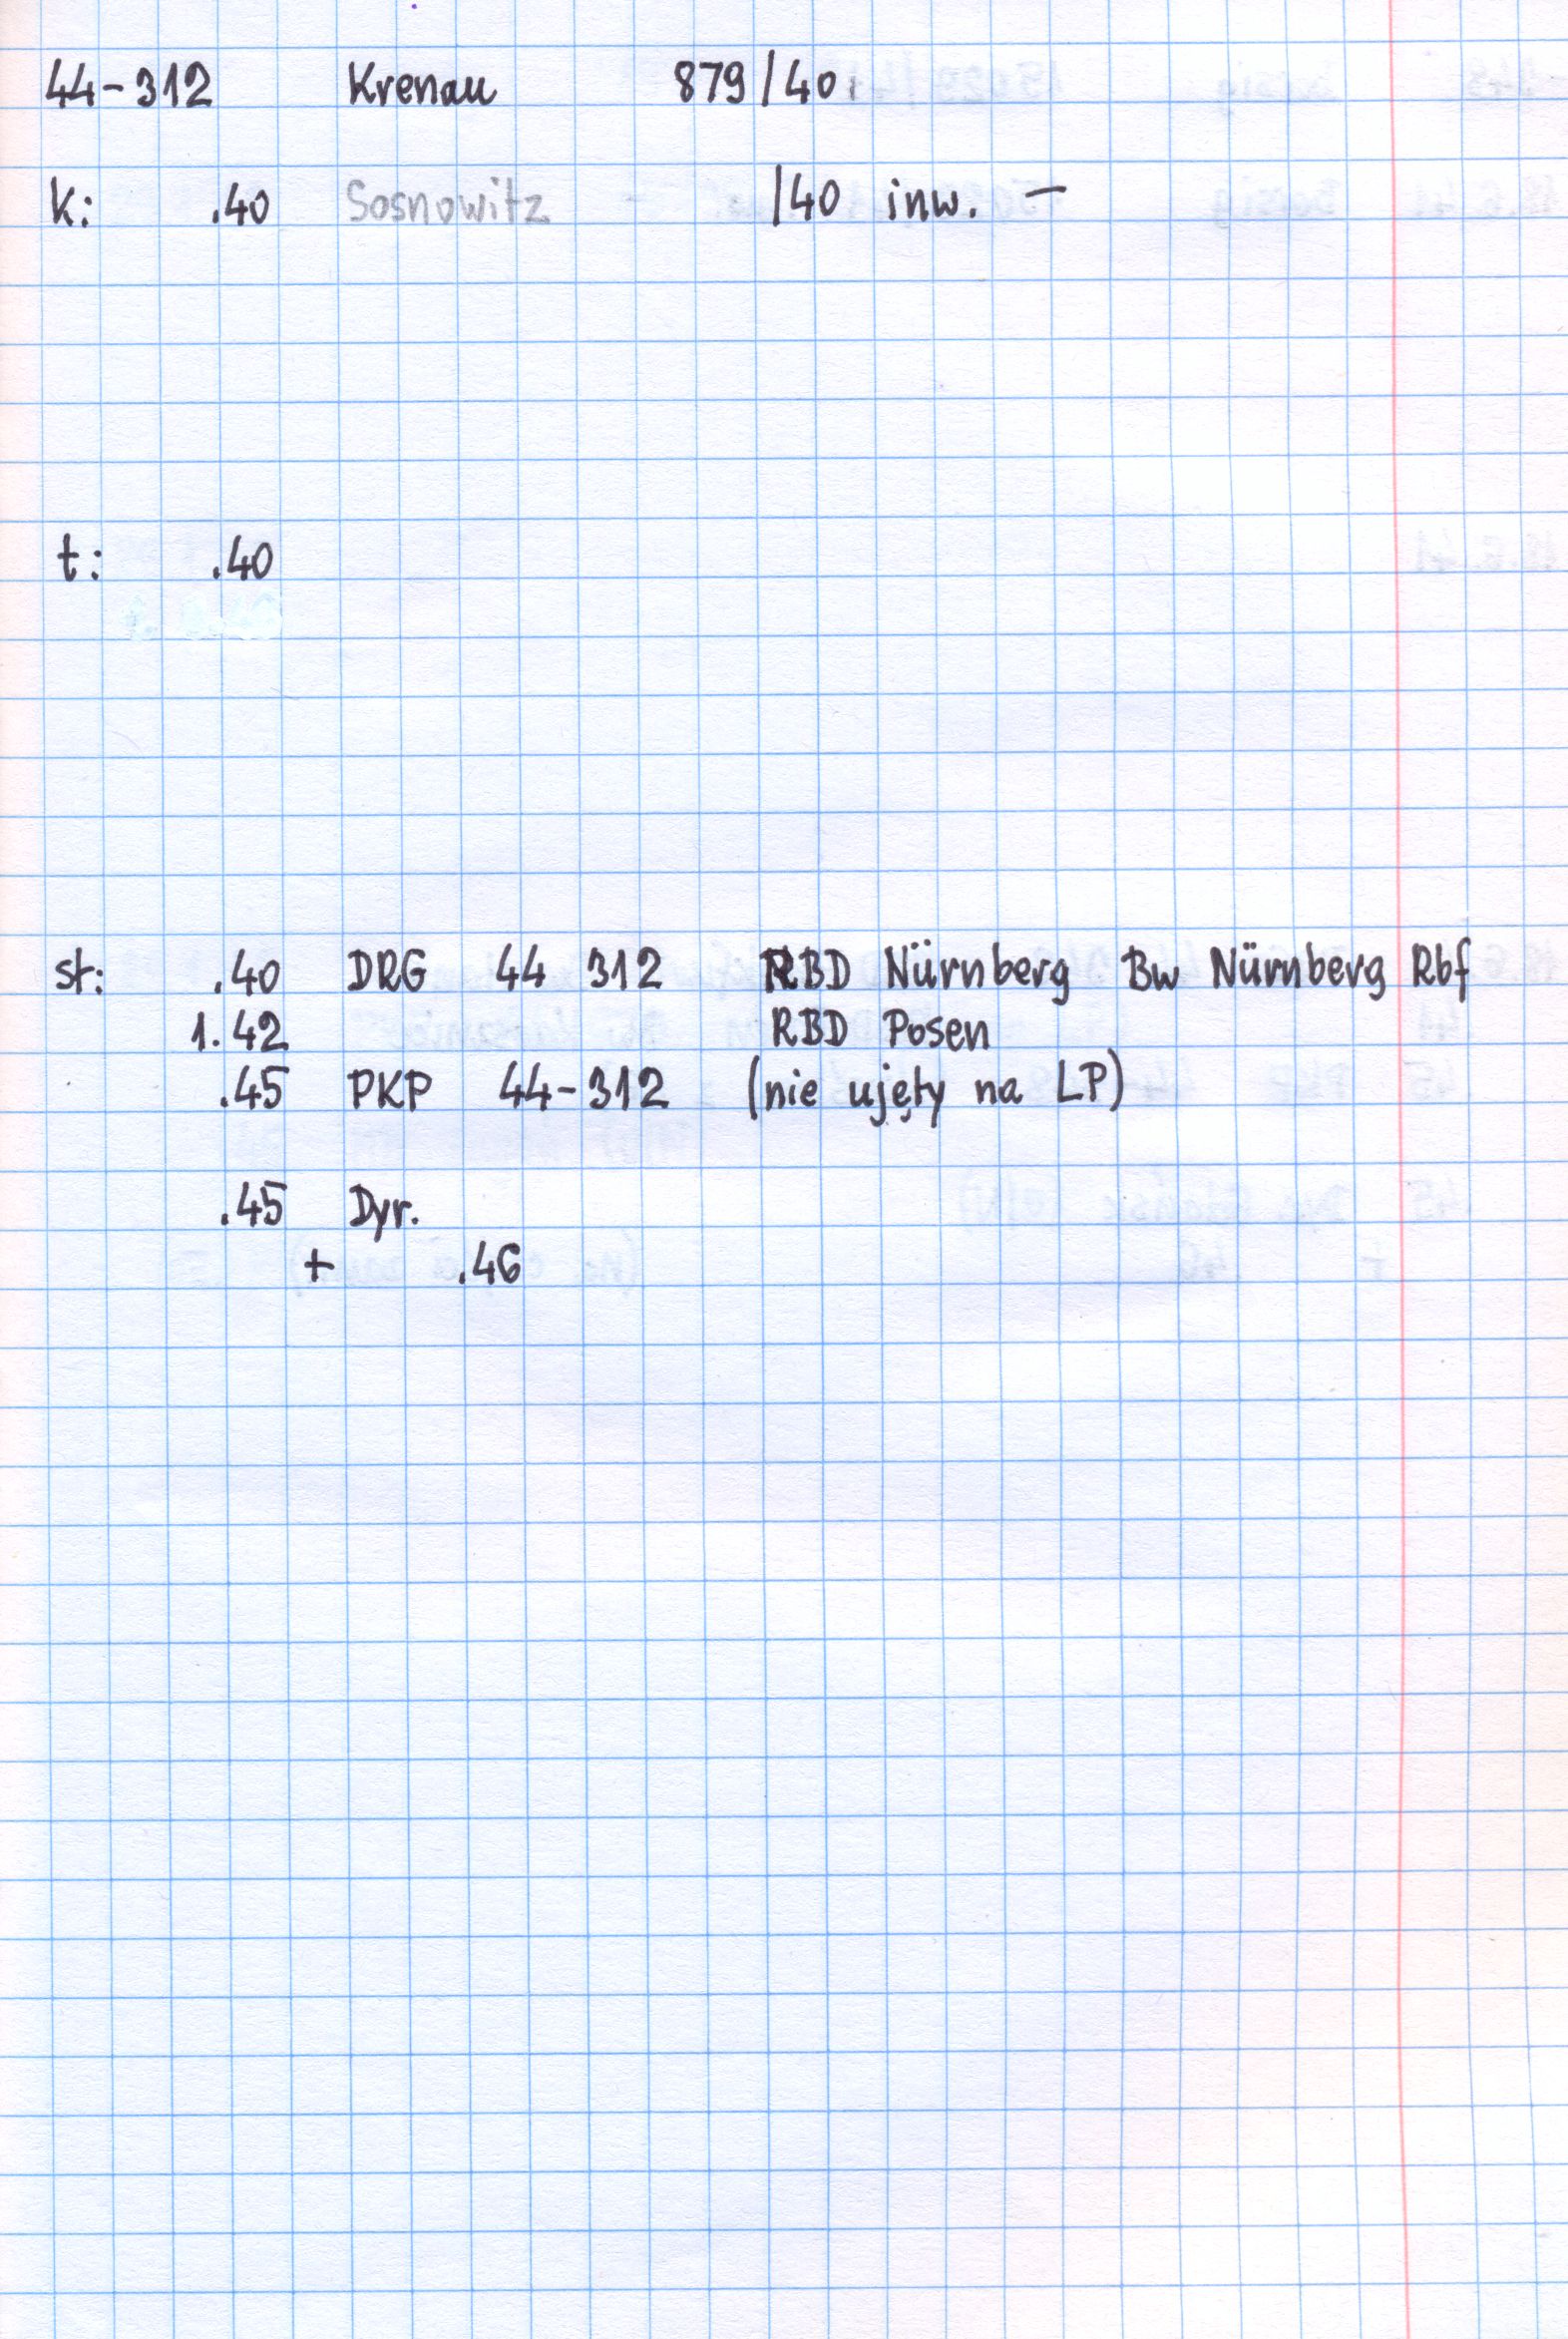 44-312 Krenau 879/40
k: .40 Sosnowitz /40 inw. –
t: .40
st: .40 DRG 44 312 RBD Nürnberg Bw Nürnberg Rbf
1.42 RBD Posen
.45 PKP 44-312 (nie ujęty na LP)
.45 Dyr.
+ .46